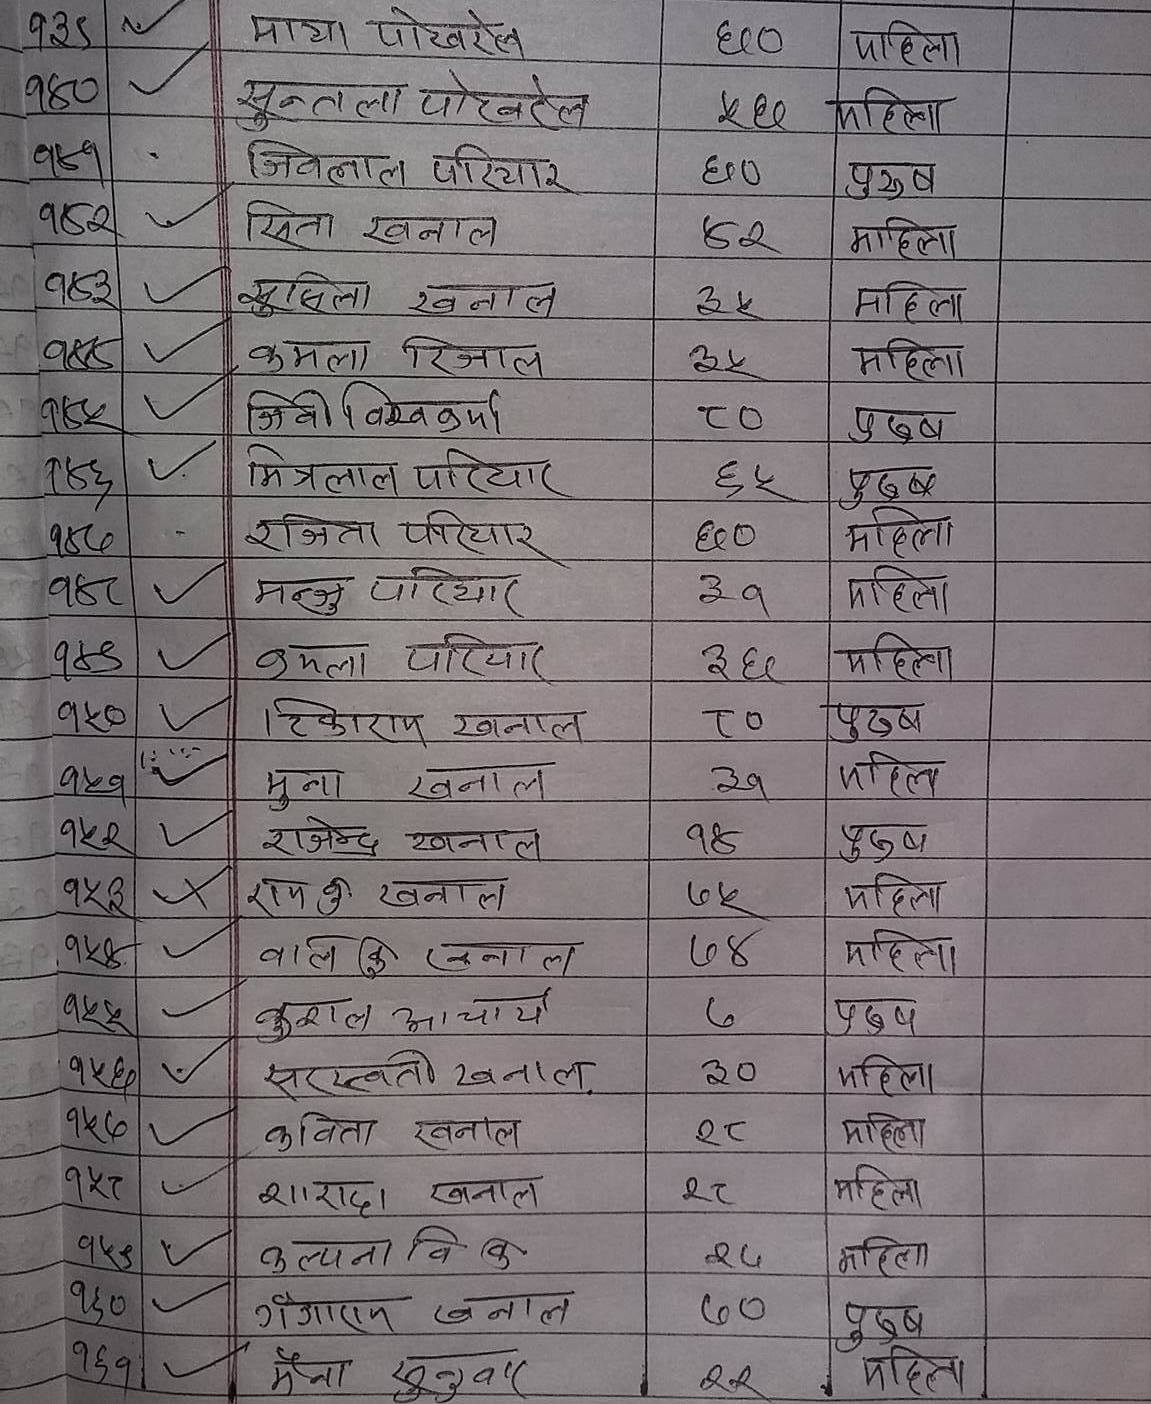 १३९ माया पोखरेल ६० महिला
१४० सुन्तला पोखरेल ५६ महिला
१४१ जिवलाल परियार ६० पुरुष
१४२ सिता खनाल ४२ महिला
१४३ सुसिला खनाल ३५ महिला
१४४ कमला रिजाल ३५ महिला
१४५ जिवी विश्वकर्मा ८० पुरुष
१४६ मित्रलाल परियार ६५ पुरुष
१४७ रजिता परियार ६० महिला
१४८ मन्जु परियार ३१ महिला
१४९ कमला परियार ३६ महिला
१५० टिकाराम खनाल ८० पुरुष
१५१ मुना खनाल ३१ महिला
१५२ राजेन्द्र खनाल १४ पुरुष
१५३ राम कु खनाल ७५ महिला
१५४ वाल कु खनाल ७४ महिला
१५५ कुशल आचार्य ७ पुरुष
१५६ सरस्वती खनाल ३० महिला
१५७ कविता खनाल २८ महिला
१५८ शारादा खनाल २८ महिला
१५९ कल्पना वि क २५ महिला
१६० गंगाराम खनाल ७० पुरुष
१६१ मैना सुनुवार २२ महिला